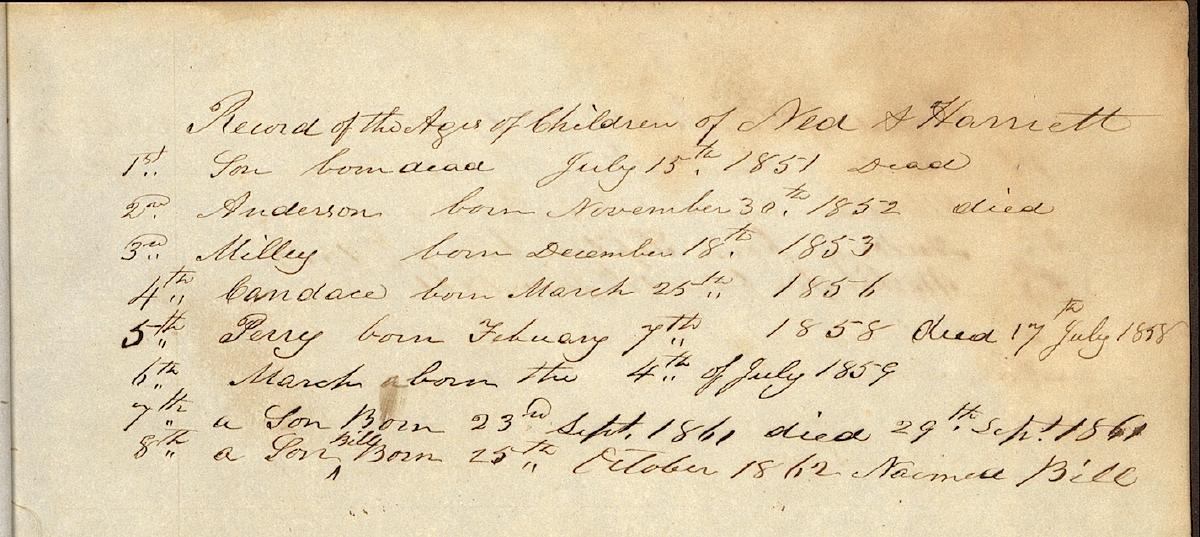 Record of the Ages of Children of Ned & Harriett
1st Son born dead July 15th 1851 Dead
2nd Anderson born November 30th 1852 died
3rd Milley born December 18th 1853
4th Candace born March 25th 1856
5th Perry born Febuary 7th 1858 died 17th July 1858
6th March born the 4th of July 1859
7th a Son Born 23rd Sept. 1861 died 29th Sept. 1861
8th a Son Bill Born 25th October 1862 Naimed Bill